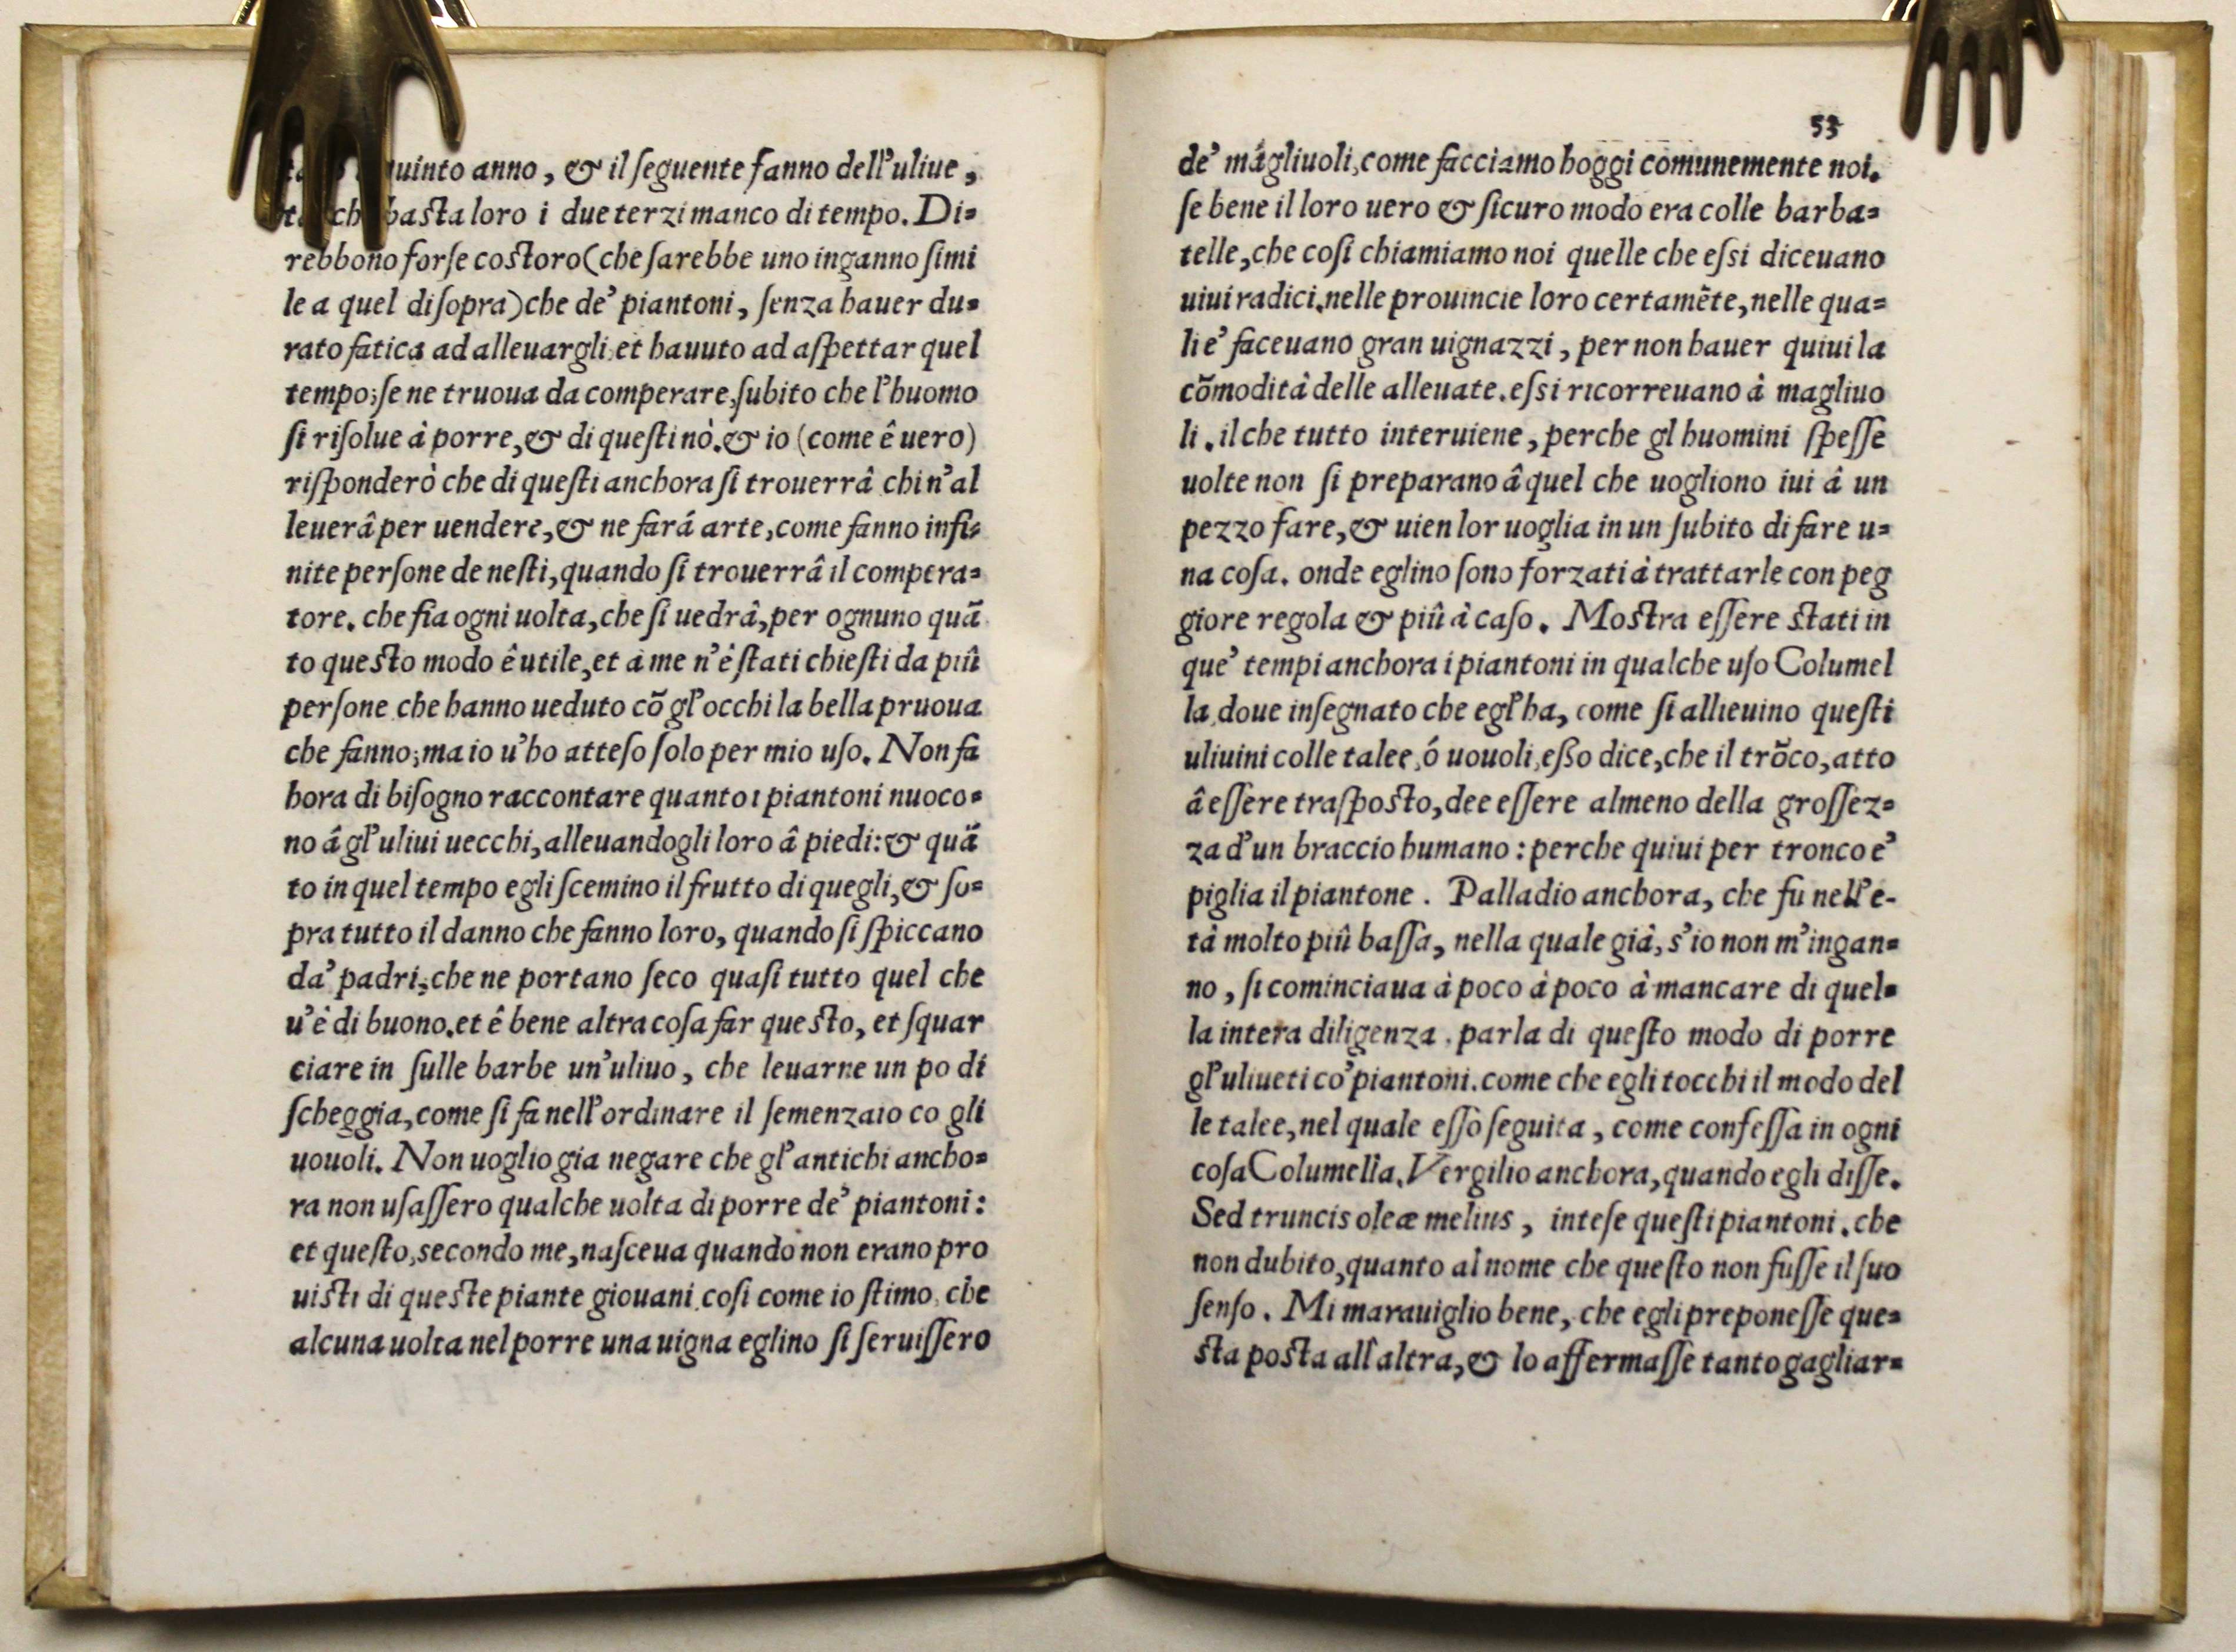 quinto anno, & il ſeguente fanno dell'uliue,
baſta loro i due terzi manco di tempo. Di=
rebbono forſe coſtoro (che ſarebbe uno inganno ſimi
le a quel diſopra) che de' piantoni, ſenza hauer du=
rato fatica ad alleuargli, et hauuto ad aſpettar quel
tempo; ſe ne truoua da comperare, ſubito che l'huomo
ſi riſolue à porre, & di queſti nò. & io (come ê uero)
riſponderò che di queſti anchora ſi trouerrâ chi n'al
leuerâ per uendere, & ne fará arte, come fanno infi=
nite perſone de neſti, quando ſi trouerrâ il compera=
tore. che fia ogni uolta, che ſi uedrâ, per ognuno quã
to queſto modo ê utile, et à me n'è ſtati chieſti da piû
perſone che hanno ueduto cõ gl'occhi la bella pruoua
che fanno; ma io u'ho atteſo ſolo per mio uſo. Non fa
hora di biſogno raccontare quanto i piantoni nuoco=
no á gl'uliui uecchi, alleuandogli loro â piedi: & quã
to in quel tempo egli ſcemino il frutto di quegli, & ſo=
pra tutto il danno che fanno loro, quando ſi ſpiccano
da' padri; che ne portano ſeco quaſi tutto quel che
u'è di buono. et ê bene altra coſa far queſto, et ſquar
ciare in ſulle barbe un'uliuo, che leuarne un po di
ſcheggia, come ſi fa nell'ordinare il ſemenzaio co gli
uouoli. Non uoglio gia negare che gl'antichi ancho=
ra non uſaſſero qualche uolta di porre de' piantoni:
et queſto, secondo me, naſceua quando non erano pro
uiſti di queſte piante giouani. coſi come io ſtimo, che
alcuna uolta nel porre una uigna eglino ſi ſeruiſſero
53
de' mágliuoli, come facciamo hoggi comunemente noi.
ſe bene il loro uero & ſicuro modo era colle barba=
telle, che coſi chiamiamo noi quelle che eſsi diceuano
uiui radici. nelle prouincie loro certamẽte, nelle qua=
li e' faceuano gran uignazzi, per non hauer quiui la
cõmodità delle alleuate. eſsi ricorreuano à magliuo
li. il che tutto interuiene, perche gl huomini ſpeſſe
uolte non ſi preparano â quel che uogliono iui â un
pezzo fare, & uien lor uoglia in un ſubito di fare u=
na coſa. onde eglino ſono forzati à trattarle con peg
giore regola & piû à caſo. Moſtra eſſere ſtati in
que' tempi anchora i piantoni in qualche uſo Columel
la, doue inſegnato che egl'ha, come ſi allieuino queſti
uliuini colle talee, ó uouoli, eßo dice, che il trõco, atto
â eſſere traſpoſto, dee eſſere almeno della groſſez=
za d'un braccio humano: perche quiui per tronco e'
piglia il piantone. Palladio anchora, che fu nell'e-
tà molto piû baſſa, nella quale già, s'io non m'ingan=
no, ſi cominciaua à poco à poco à mancare di quel=
la intera diligenza, parla di queſto modo di porre
gl'uliueti co' piantoni. come che egli tocchi il modo del
le talee, nel quale eſſo ſeguita, come confeſſa in ogni
coſa Columella. Vergilio anchora, quando egli diſſe.
Sed truncis oleæ melius, inteſe queſti piantoni. che
non dubito, quanto al nome che queſto non fuſſe il ſuo
ſenſo. Mi marauiglio bene, che egli preponeſſe que=
ſta poſta all altra, & lo affermaſſe tanto gagliar=